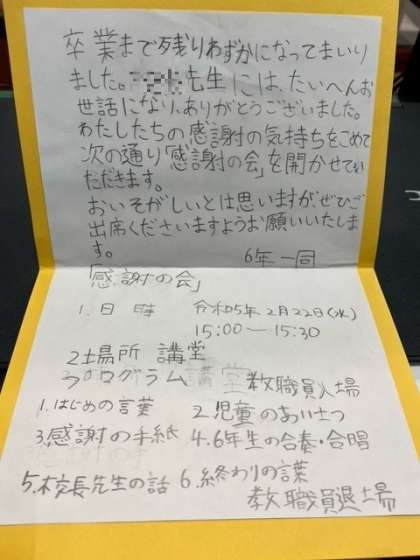 卒業まで残りわずかになってまいり
ました。先生には、たいへんお
世話になり、ありがとうございました。
わたしたちの感謝の気持ちをこめて
次の通り「感謝の会」を開かせてい
ただきます。
おいそがしいとは思いますが、ぜひご
出席くださいますようお願いいたしま
す。
6年一同
「感謝の会」
1.日時 令和5年2月22日(水)
15:00—15:30
2.場所 講堂
プログラム 教職員入場
1.はじめの言葉 2.児童のあいさつ
3.感謝の手紙 4.6年生の合奏・合唱
5.校長先生の話 6.終わりの言葉
教職員退場